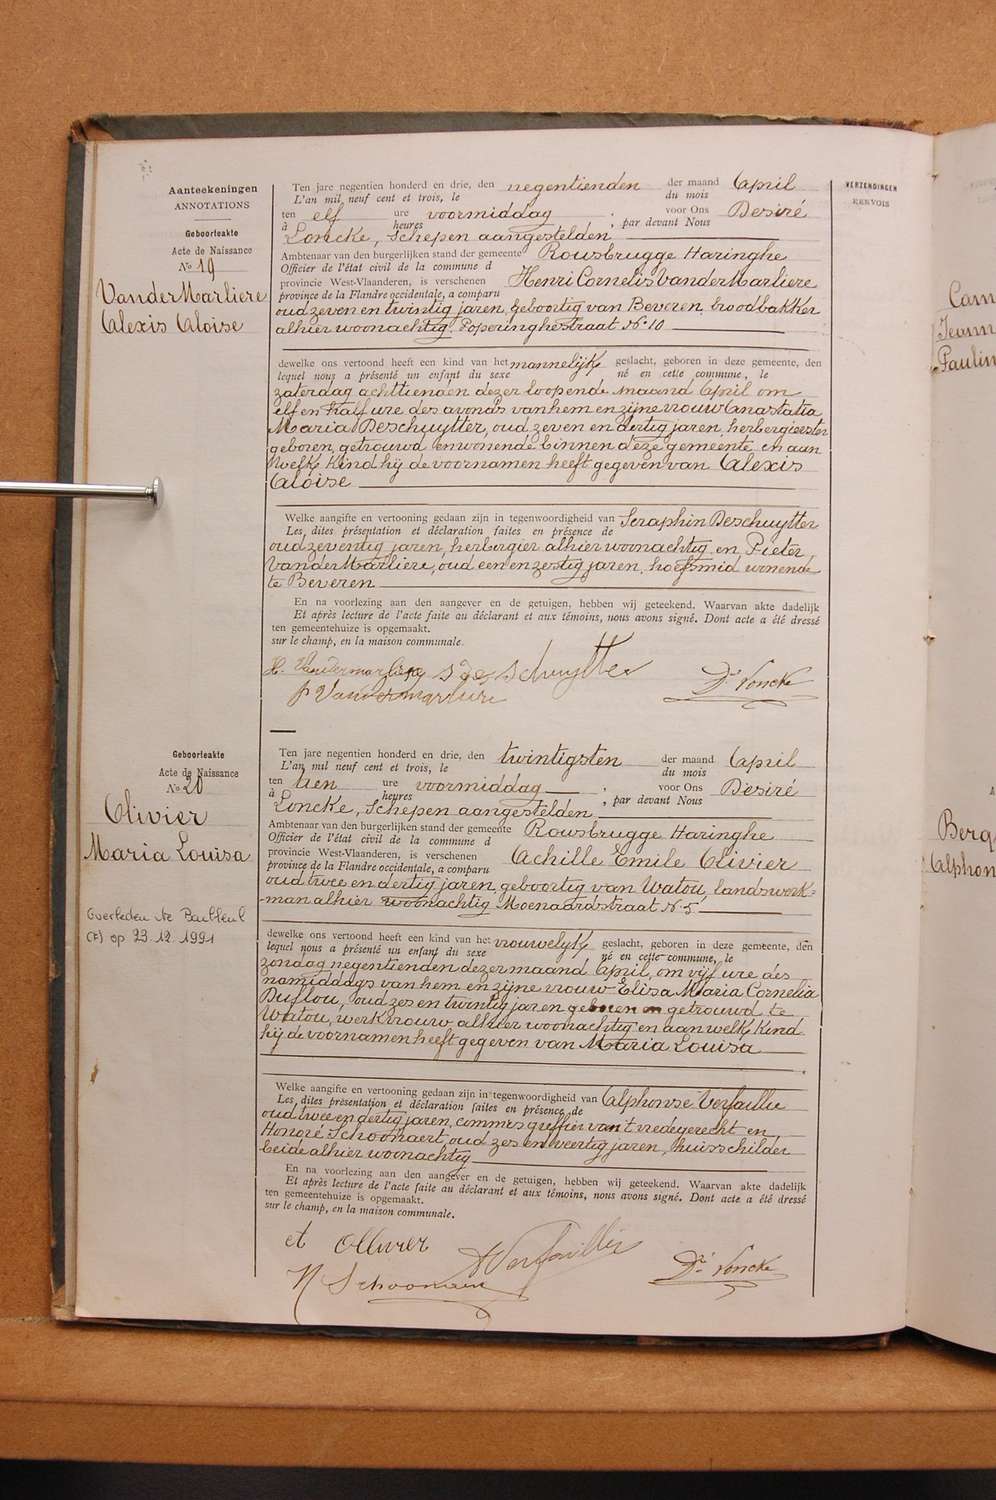 Aanteekeningen
ANNOTATIONS
Geboorteakte
Acte de Naissance
No 19
VanderMarliere
Alexis Aloise
Ten jare negentien honderd en drie, den negentienden der maand April
L'an mil neuf cent et trois, le du mois
ten elf ure voormiddag ; voor Ons Desiré
à heures , par devant Nous
Loncke, Schepen aangestelden
Ambtenaar van den burgerlijken stand der gemeente Rousbrugge Haringhe
Officier de l'état civil de la commune d
provincie West-Vlaanderen, is verschenen Henri Cornelis VanderMarliere
province de la Flandre occidentale, a comparu
oud zeven en twintig jaren, geboortig van Beveren, broodbakker
alhier woonachtig, Poperinghestraat No 10
dewelke ons vertoond heeft een kind van het mannelijk geslacht, geboren in deze gemeente, den
lequel nous a présenté un enfant du sexe né en cette commune, le
zaterdag achttienden dezer loopende maand April om
elf en half ure des avonds van hem en zijne vrouw Anastatia
Maria Deschuytter, oud zeven en dertig jaren, herbergierster
geboren, getrouwd en wonende binnen deze gemeente en aan
welk kind hij de voornamen heeft gegeven van Alexis
Aloise
Welke aangifte en vertooning gedaan zijn in tegenwoordigheid van Seraphin Deschuytter
Les dites présentation et déclaration faites en présence de
oud zeventig jaren, herbergier alhier woonachtig en Pieter
VanderMarliere, oud een en zestig jaren, hoefsmid wonende
te Beveren
En na voorlezing aan den aangever en de getuigen, hebben wij geteekend. Waarvan akte dadelijk
Et après lecture de l'acte faite au déclarant et aux témoins, nous avons signé. Dont acte a été dressé
ten gemeentehuize is opgemaakt.
sur le champ, en la maison communale.
H. Vandermarliere S deschuytter Dré Loncke
p Vandermarliere
Geboorteakte
Acte de Naissance
No 20
Olivier
Maria Louisa
Overleden te Bailleul
(F) op 23.12.1991
Ten jare negentien honderd en drie, den twintigsten der maand April
L'an mil neuf cent et trois, le du mois
ten tien ure voormiddag ; voor Ons Desiré
à heures , par devant Nous
Loncke, Schepen aangestelden
Ambtenaar van den burgerlijken stand der gemeente Rousbrugge Haringhe
Officier de l'état civil de la commune d
provincie West-Vlaanderen, is verschenen Achille Emile Olivier
province de la Flandre occidentale, a comparu
oud twee en dertig jaren, geboortig van Watou, landswerk-
-man alhier woonachtig Moenaardstraat No 5
dewelke ons vertoond heeft een kind van het vrouwelijk geslacht, geboren in deze gemeente, den
lequel nous a présenté un enfant du sexe né en cette commune, le
zondag negentienden dezer maand April, om vijf ure des
namiddags van hem en zijne vrouw Elisa Maria Cornelia
Duflou, oud zes en twintig jaren geboren en getrouwd te
Watou, werkvrouw alhier woonachtig en aan welk kind
hij de voornamen heeft gegeven van Maria Louisa
Welke aangifte en vertooning gedaan zijn in tegenwoordigheid van Alphonse Verfaillie
Les dites présentation et déclaration faites en présence de
oud twee en dertig jaren, commis greffier van 't vredegerecht en
Honoré Schoonaert, oud zes en veertig jaren, huisschilder
beide alhier woonachtig
En na voorlezing aan den aangever en de getuigen, hebben wij geteekend. Waarvan akte dadelijk
Et après lecture de l'acte faite au déclarant et aux témoins, nous avons signé. Dont acte a été dressé
ten gemeentehuize is opgemaakt.
sur le champ, en la maison communale.
Ollivier AVerfaillie Dré Loncke
H Schoonaert
VERZENDINGEN
RENVOIS
Cam
Jeann
Paulin
Berg
Alphon